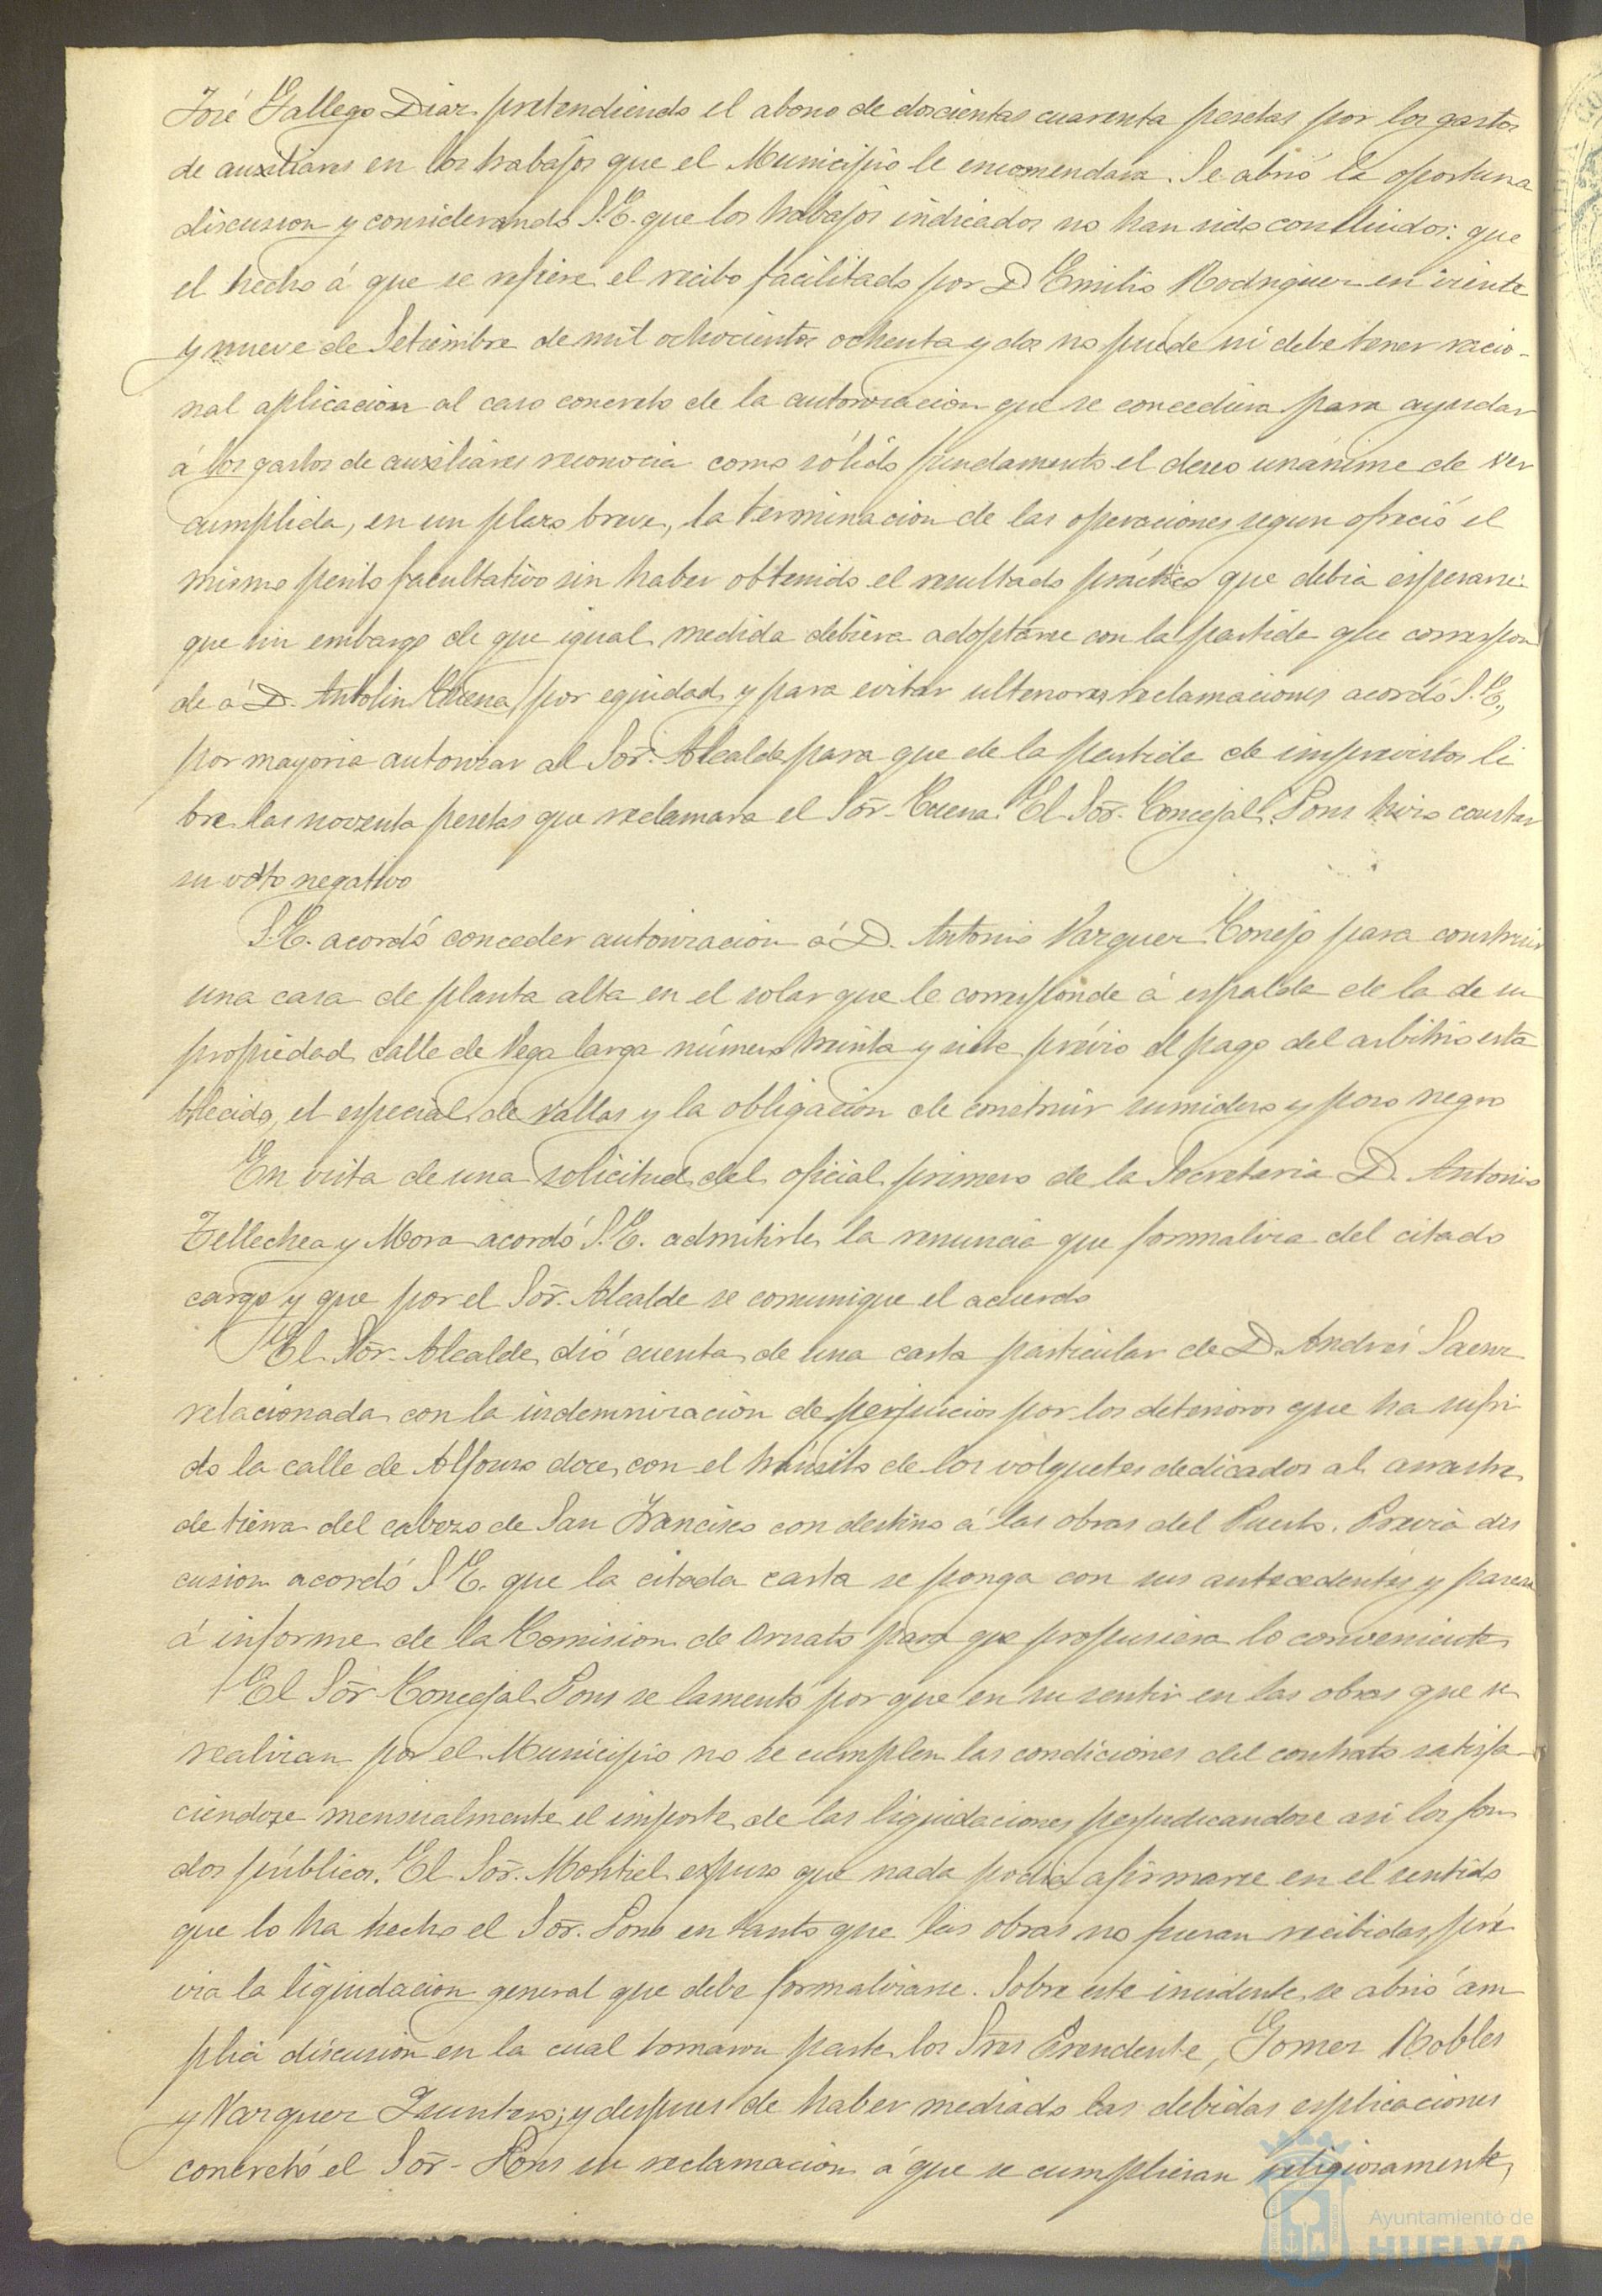 José Gallego Diaz pretendiendo el abono de doscientas cuarenta pesetas por los gastos
de auxiliares en los trabajos que el Municipio le encomendara. Se abrió la oportuna
discusion y considerando S.E. que los trabajos indicados no han sido concluidos: que
el hecho á que se refiere el recibo facilitado por D Emilio Rodriguez en veinte
y nueve de Setiembre de mil ochocientos ochenta y dos no puede ni debe tener racio-
nal aplicacion al caso concreto de la autorizacion que se concediera para ayudar
á los gastos de auxiliares reconocia como sólido fundamento el deseo unánime de ver
cumplida, en un plazo breve, la terminacion de las operaciones segun ofreció el
mismo perito facultativo sin haber obtenido el resultado práctico que debia esperarse:
que sin embargo de que igual medida debiera adoptarse con la partida que correspon
de á D. Antolin Cuena por equidad y para evitar ulteriores reclamaciones acordó S.E.,
por mayoria autorizar al Sor. Alcalde para que de la partida de imprevistos li
bre las noventa pesetas que reclamara el Sor. Cuena. El Sor. Concejal Pons hizo constar
su voto negativo
S.E. acordó conceder autorizacion á D. Antonio Vazquez Conejo para construir
una casa de planta alta en el solar que le corresponde á espalda de la de su
propiedad calle de Vega larga número treinta y siete prévio el pago del arbitrio esta
blecido, el especial de vallas y la obligacion de construir sumidero y pozo negro
En vista de una solicitud del oficial primero de la Secretaria D. Antonio
Tellechea y Mora acordó S.E. admitirle la renuncia que formaliza del citado
cargo y que por el Sor. Alcalde se comunique el acuerdo
El Sor. Alcalde dió cuenta de una carta particular de D. Andrés Saenz
relacionada con la indemnizacion de perjuicios por los deterioros que ha sufri
do la calle de Alfonso doce con el tránsito de los volquetes dedicados al arrastre
de tierra del cabezo de San Francisco con destino á las obras del Puerto. Previa dis
cusion acordó S.E. que la citada carta se ponga con sus antecedentes y pasara
á informe de la Comision de Ornato para que propusiera lo conveniente
El Sor Concejal Pons se lamentó por que en su sentir en las obras que se
realizan por el Municipio no se cumplen las condiciones del contrato satisfa-
ciendose mensualmente el importe de las liquidaciones perjudicandose asi los fon
dos públicos. El Sor. Montiel expuso que nada podia afirmarse en el sentido
que lo ha hecho el Sor. Pons en tanto que las obras no fueran recibidas, pré
via la liquidacion general que debe formalizarse. Sobre este incidente se abrió am
plia discusion en la cual tomaron parte los Sres Presidente, Gomez Robles
y Vazquez Zsuntero; y despues de haber mediado las debidas esplicaciones
concretó el Sor. Pons su reclamacion á que se cumplieran religiosamente,
Ayuntamiento de
HUELVA